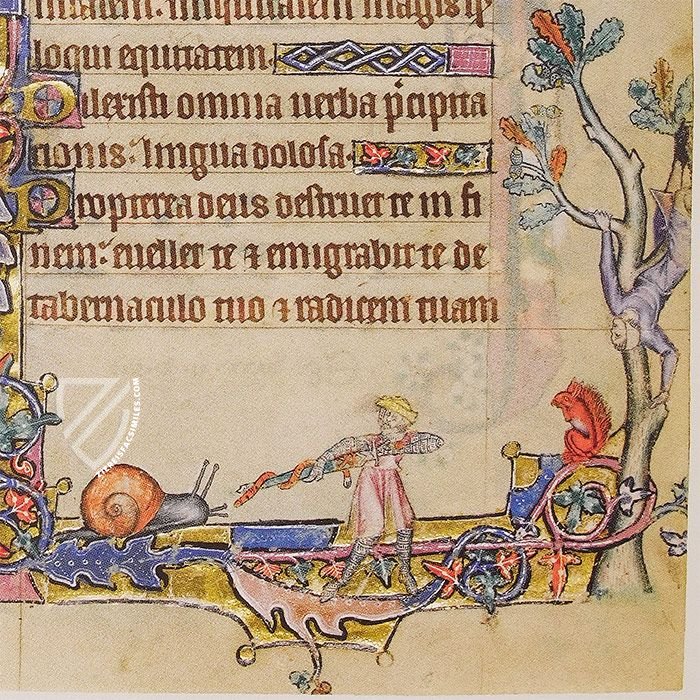 loqui equitatem.
Dilexisti omnia uerba p̄cipita
cionis: lingua dolosa.
Propterea deus destruet te in fi
nem: euellet te ⁊ emigrabit te de
tabernaculo tuo ⁊ radicem tuam
ZITEISFACSIMILES.COM